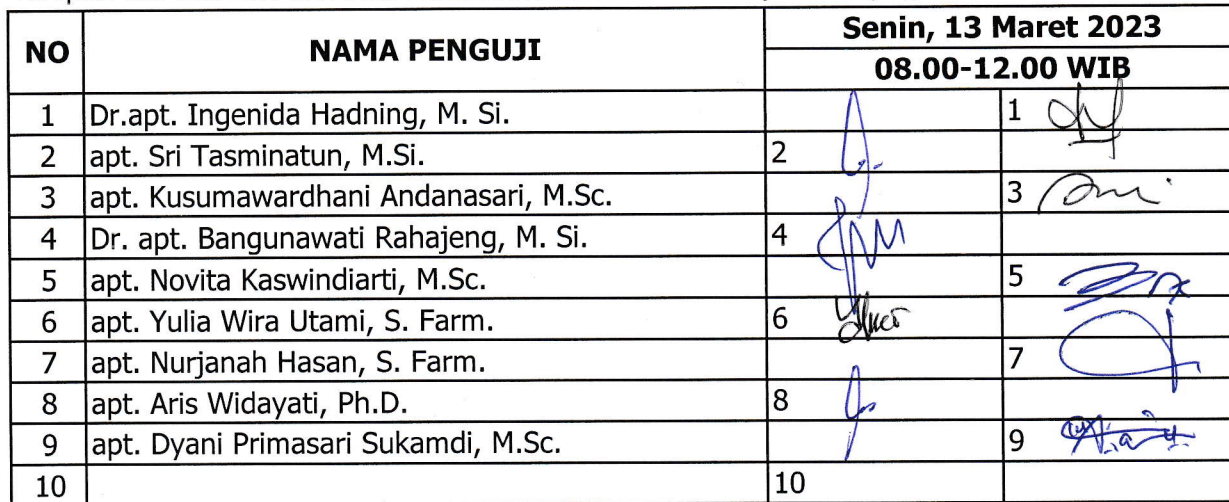 NO NAMA PENGUJI Senin, 13 Maret 2023
08.00-12.00 WIB
1 Dr.apt. Ingenida Hadning, M. Si. 1
2 apt. Sri Tasminatun, M.Si. 2
3 apt. Kusumawardhani Andanasari, M.Sc. 3
4 Dr. apt. Bangunawati Rahajeng, M. Si. 4
5 apt. Novita Kaswindiarti, M.Sc. 5
6 apt. Yulia Wira Utami, S. Farm. 6
7 apt. Nurjanah Hasan, S. Farm. 7
8 apt. Aris Widayati, Ph.D. 8
9 apt. Dyani Primasari Sukamdi, M.Sc. 9
10 10